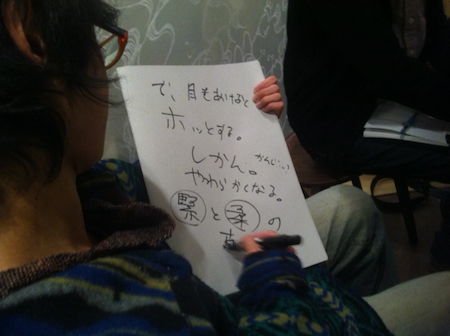 で、目もあけると
ホッとする。
しかん。かんじ…
やわらかくなる。
緊と柔の